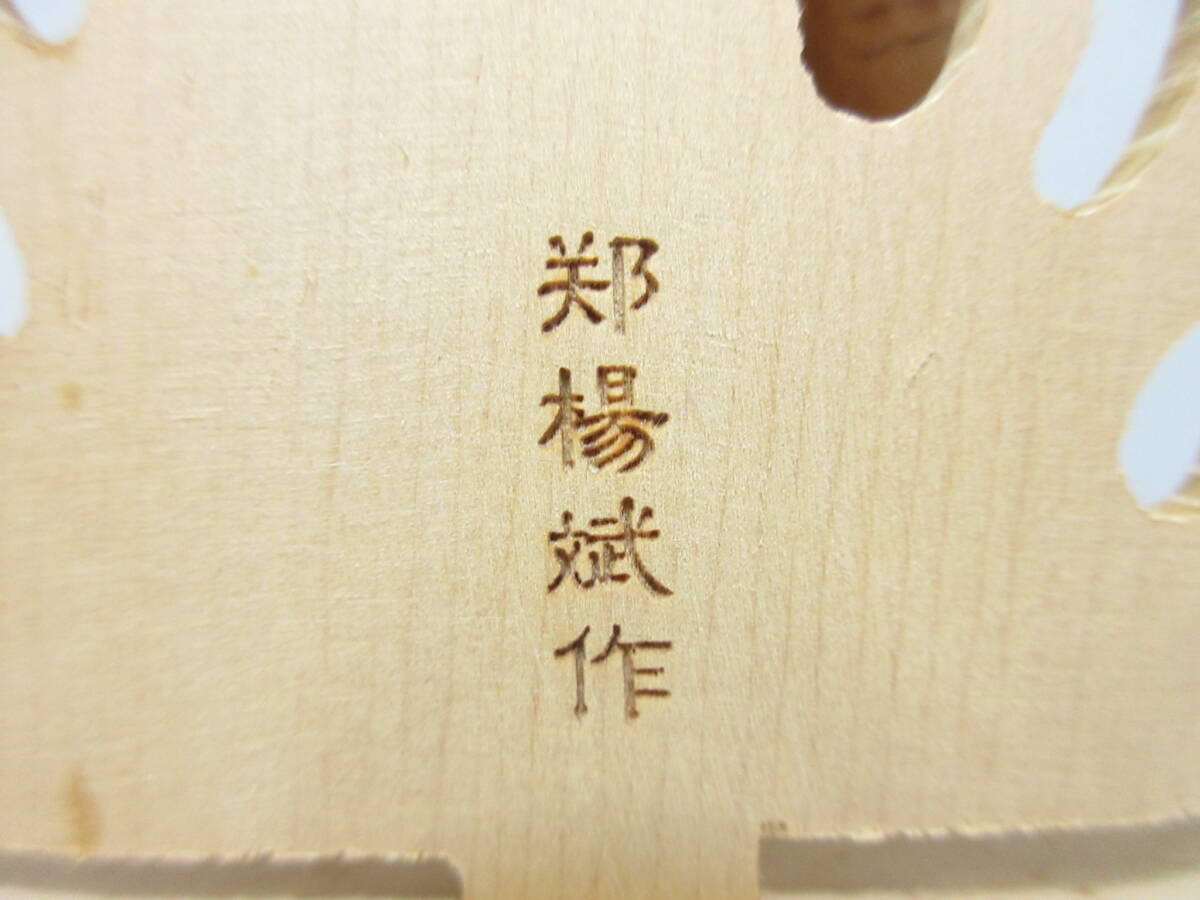 郑楊斌作